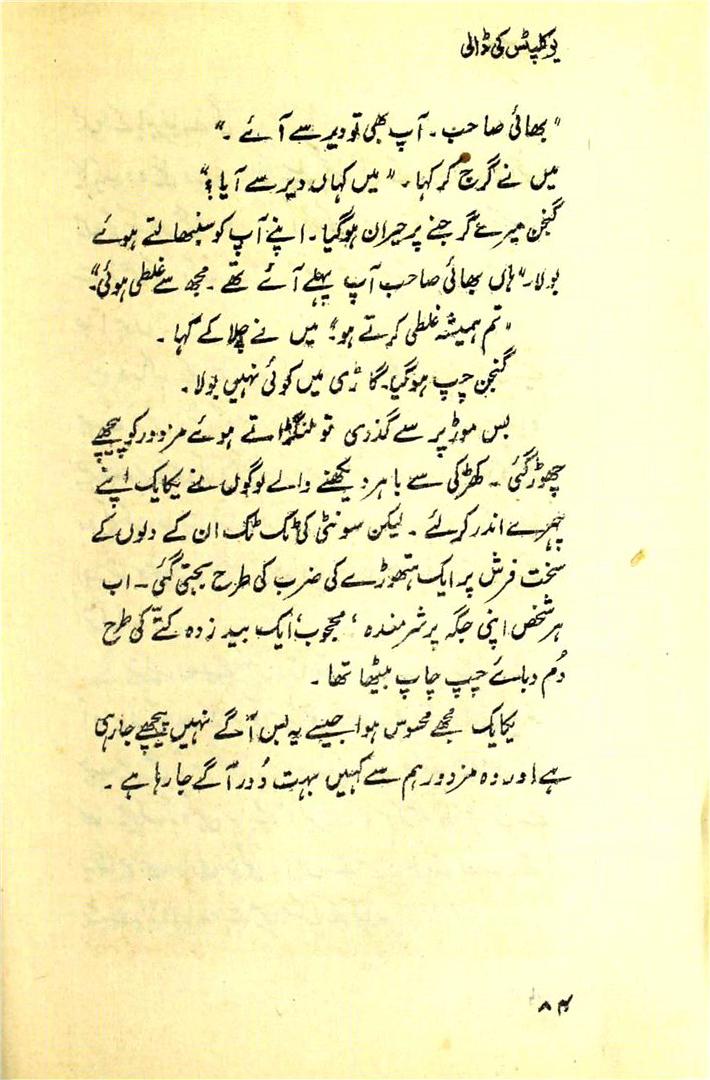 یوکلپٹس کی ڈالی
"بھائی صاحب۔ آپ بھی تو دیر سے آئے۔"
میں نے گرج کر کہا۔ "میں کہاں دیر سے آیا؟"
گنجن میرے گرجنے پر حیران ہوگیا۔ اپنے آپ کو سنبھالتے ہوئے
بولا۔ "ہاں بھائی صاحب آپ پہلے آئے تھے۔ مجھ سے غلطی ہوئی۔"
"تم ہمیشہ غلطی کرتے ہو۔" میں نے چلا کے کہا۔
گنجن چپ ہوگیا۔ گاڑی میں کوئی نہیں بولا۔
بس موڑ پر سے گذری تو لنگڑاتے ہوئے مزدور کو پیچھے
چھوڑ گئی۔ کھڑکی سے باہر دیکھنے والے لوگوں نے یکایک اپنے
چہرے اندر کرلئے۔ لیکن سونٹی کی ٹک ٹک ان کے دلوں کے
سخت فرش پر ایک ہتھوڑے کی ضرب کی طرح بجتی گئی۔ اب
ہر شخص اپنی جگہ پر شرمندہ، محجوب، ایک بید زدہ کتّے کی طرح
دُم دبائے چپ چاپ بیٹھا تھا۔
یکایک مجھے محسوس ہوا جیسے یہ بس آگے نہیں پیچھے جارہی
ہے اور وہ مزدور ہم سے کہیں بہت دُور آگے جارہا ہے۔
۸۴